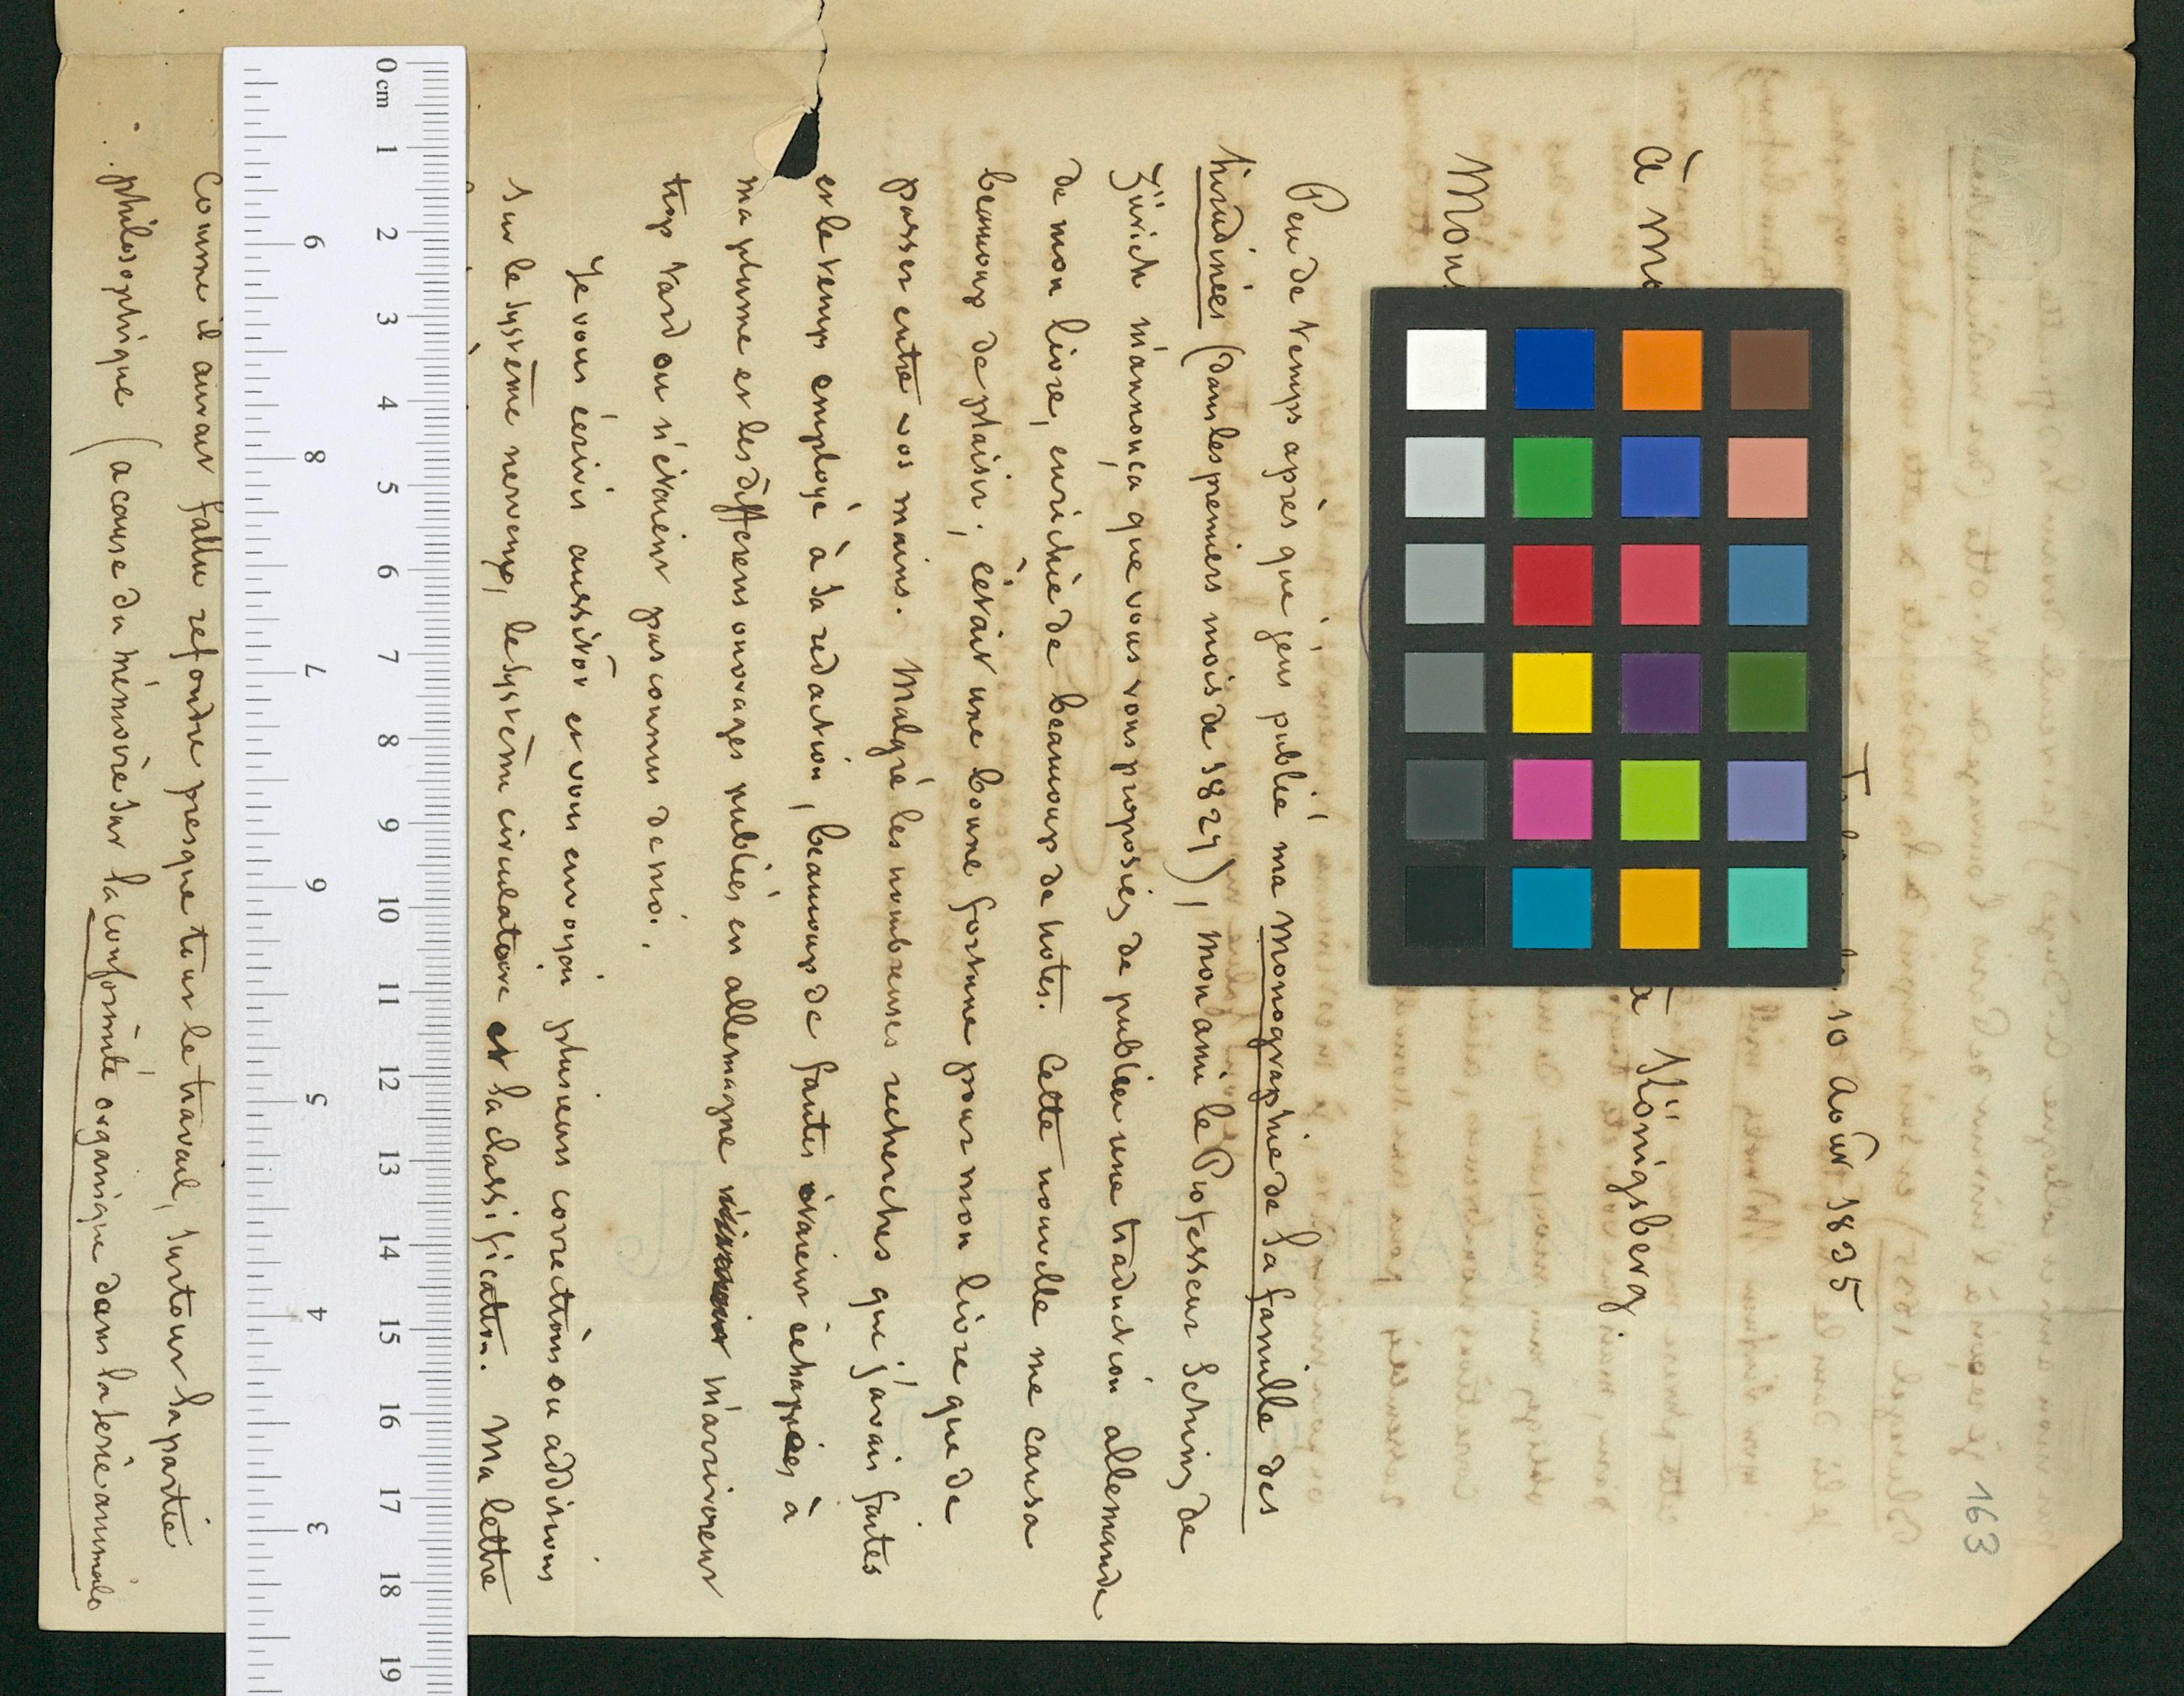 163
10 Août 1835
à Mo à Königsberg.
Mon
Peu de temps après que j'eus publié ma Monographie de la famille des
hirudinées (dans les premiers mois de 1827), mon ami le Professeur Schinz de
Zürich m'annonça que vous vous proposiez de publier une traduction allemande
de mon livre, enrichie de beaucoup de notes. Cette nouvelle me causa
beaucoup de plaisir; c'était une bonne fortune pour mon livre que de
passer entre vos mains. Malgré les nombreuses recherches que j'avais faites
et le temps employé à la rédaction, beaucoup de fautes étaient échappées à
ma plume et les differens ouvrages publiés en allemagne m'arrivèrent
trop tard ou n'étaient pas connus de moi.
Je vous écrivis aussitôt et vous envoyai plusieurs corrections ou additions
sur le système nerveux, le système circulatoire et la classification. Ma lettre
Comme il aurait fallu refondre presque tout le travail, surtout la partie
philosophique (a cause du mémoire sur la conformité organique dans la serie animale
0 cm 1 2 3 4 5 6 7 8 9 10 11 12 13 14 15 16 17 18 19
9 8 7 6 5 4 3